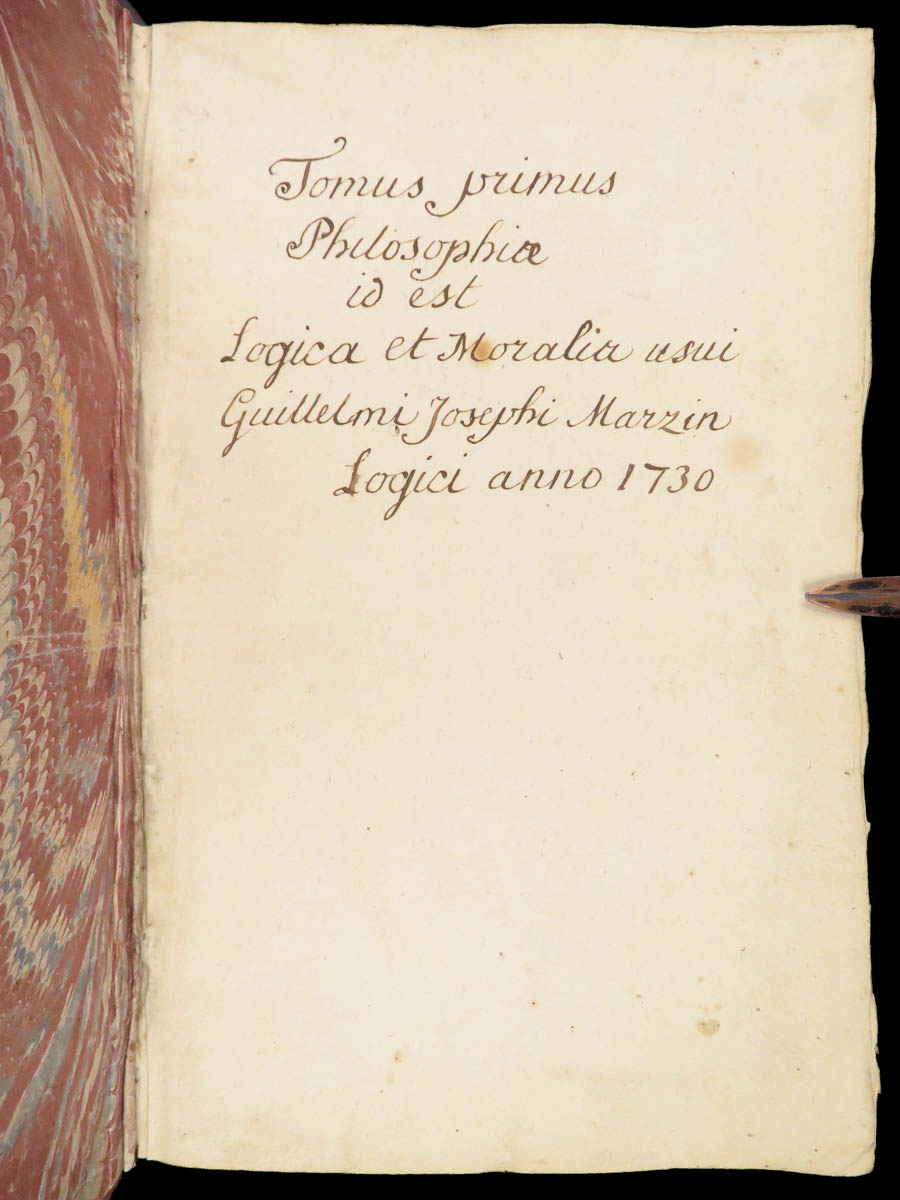 Tomus primus
Philosophiæ
id est
Logica et Moralia usui
Guillelmi Josephi Marzin
Logici anno 1730